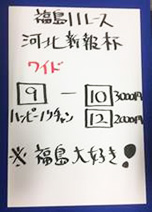 福島11レース
河北新報杯
ワイド
9 ― 10 3000円
ハッピーノリチャン 12 2000円
※福島大好き!